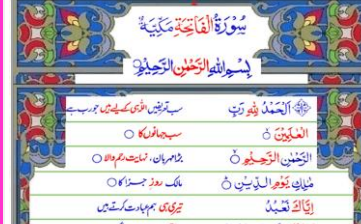 سُوْرَةُ الْفَاتِحَةِ مَكِّيَّةٌ
بِسْمِ اللهِ الرَّحْمٰنِ الرَّحِيْمِ
اَلْحَمْدُ لِلّٰهِ رَبِّ سب تعریفیں اللہ ہی کے لیے ہیں جو رب ہے
الْعٰلَمِيْنَ سب جہانوں کا
الرَّحْمٰنِ الرَّحِيْمِ بڑا مہربان، نہایت رحم والا
مٰلِكِ يَوْمِ الدِّيْنِ مالک روز جزا کا
اِيَّاكَ نَعْبُدُ تیری ہی ہم عبادت کرتے ہیں